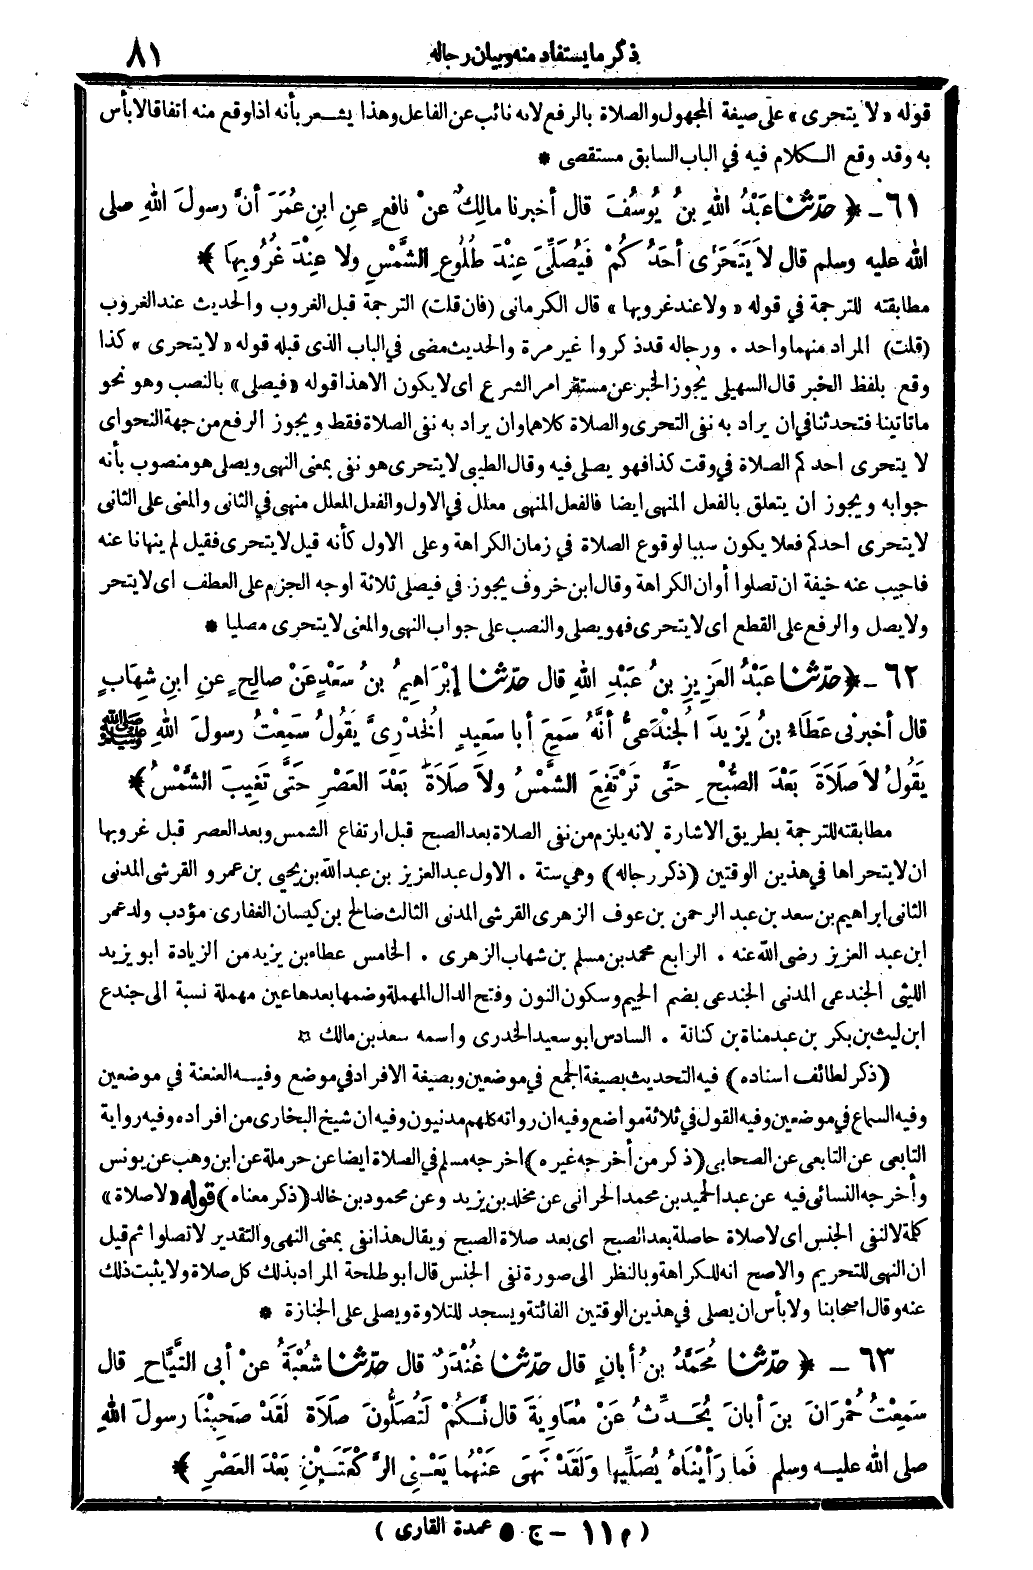 ذكر ما يستفاد منه وبيان رجاله ٨١
قوله « لا يتحرى » على صيغة المجهول والصلاة بالرفع لانه نائب عن الفاعل وهذا يشعر بأنه اذا وقع منه اتفاقا لا بأس
به وقد وقع الكلام فيه في الباب السابق مستقصى *
٦١ - ﴿ حدثنا عَبْدُ اللهِ بنُ يُوسُفَ قال أخبرنا مالِكٌ عنْ نافِعٍ عنِ ابنِ عُمَرَ أنَّ رسولَ اللهِ صلى
الله عليه وسلم قال لاَ يَتَحَرَّى أحَدُكُمْ فَيُصَلِّىَ عِنْدَ طُلُوعِ الشَّمْسِ ولا عِنْدَ غُرُوبِهَا ﴾
مطابقته للترجمة في قوله « ولا عند غروبها » قال الكرمانى (فان قلت) الترجمة قبل الغروب والحديث عند الغروب
(قلت) المراد منهما واحد . ورجاله قد ذكروا غير مرة والحديث مضى في الباب الذى قبله قوله « لا يتحرى » كذا
وقع بلفظ الخبر قال السهيلى يجوز الخبر عن مستقر امر الشرع اى لا يكون الا هذا قوله « فيصلى » بالنصب وهو نحو
ما تاتينا فتحدثنا في ان يراد به نفى التحرى والصلاة كلاهما وان يراد به نفى الصلاة فقط ويجوز الرفع من جهة النحو اى
لا يتحرى احدكم الصلاة في وقت كذا فهو يصلى فيه وقال الطيبى لا يتحرى هو نفى بمعنى النهى ويصلى هو منصوب بأنه
جوابه ويجوز ان يتعلق بالفعل المنهى ايضا فالفعل المنهى معلل في الاول والفعل المعلل منهى في الثانى والمعنى على الثانى
لا يتحرى احدكم فعلا يكون سببا لوقوع الصلاة في زمان الكراهة وعلى الاول كأنه قيل لا يتحرى فقيل لم ينهانا عنه
فاجيب عنه خيفة ان تصلوا أوان الكراهة وقال ابن خروف يجوز في فيصلى ثلاثة اوجه الجزم على العطف اى لا يتحر
ولا يصل والرفع على القطع اى لا يتحرى فهو يصلى والنصب على جواب النهى والمعنى لا يتحرى مصليا *
٦٢ - ﴿ حدثنا عَبْدُ العَزِيزِ بنُ عَبْدِ اللهِ قال حدثنا إبْرَاهِيمُ بنُ سَعْدٍ عَنْ صالِحٍ عنِ ابنِ شِهَابٍ
قال أخبرنى عَطَاءُ بنُ يَزِيدَ الجُنْدَعِىُّ أنَّهُ سَمِعَ أبا سَعِيدٍ الخُدْرِىَّ يَقُولُ سَمِعْتُ رسولَ اللهِ ﷺ
يَقُولُ لاَ صَلاَةَ بَعْدَ الصُّبْحِ حَتَّى تَرْتَفِعَ الشَّمْسُ ولاَ صَلاَةَ بَعْدَ العَصْرِ حَتَّى تَغِيبَ الشَّمْسُ ﴾
مطابقته للترجمة بطريق الاشارة لانه يلزم من نفى الصلاة بعد الصبح قبل ارتفاع الشمس وبعد العصر قبل غروبها
ان لا يتحراها في هذين الوقتين (ذكر رجاله) وهى ستة . الاول عبد العزيز بن عبد الله بن يحيى بن عمرو القرشى المدنى
الثانى ابراهيم بن سعد بن عبد الرحمن بن عوف الزهرى القرشى المدنى الثالث صالح بن كيسان الغفارى مؤدب ولد عمر
ابن عبد العزيز رضى الله عنه . الرابع محمد بن مسلم بن شهاب الزهرى . الخامس عطاء بن يزيد من الزيادة ابو يزيد
الليثى الجندعى المدنى الجندعى بضم الجيم وسكون النون وفتح الدال المهملة وضمها بعدها عين مهملة نسبة الى جندع
ابن ليث بن بكر بن عبد مناة بن كنانة . السادس ابو سعيد الخدرى واسمه سعد بن مالك ¤
(ذكر لطائف اسناده) فيه التحديث بصيغة الجمع في موضعين وبصيغة الافراد في موضع وفيه العنعنة في موضعين
وفيه السماع في موضعين وفيه القول في ثلاثة مواضع وفيه ان رواته كلهم مدنيون وفيه ان شيخ البخارى من افراده وفيه رواية
التابعى عن التابعى عن الصحابى (ذكر من أخرجه غيره) اخرجه مسلم في الصلاة ايضا عن حرملة عن ابن وهب عن يونس
وأخرجه النسائى فيه عن عبد الحميد بن محمد الحرانى عن مخلد بن يزيد وعن محمود بن خالد (ذكر معناه) قوله « لا صلاة »
كلمة لا لنفى الجنس اى لا صلاة حاصلة بعد الصبح اى بعد صلاة الصبح ويقال هذا نفى بمعنى النهى والتقدير لا تصلوا ثم قيل
ان النهى للتحريم والاصح انه للكراهة وبالنظر الى صورة نفى الجنس قال ابو طلحة المراد بذلك كل صلاة ولا يثبت ذلك
عنه وقال اصحابنا ولا بأس ان يصلى في هذين الوقتين الفائتة ويسجد للتلاوة ويصلى على الجنازة *
٦٣ - ﴿ حدثنا مُحَمَّدُ بنُ أبانٍ قال حدثنا غُنْدَرٌ قال حدثنا شُعْبَةُ عنْ أبى التَّيَّاحِ قال
سَمِعْتُ حُمْرَانَ بنَ أبانَ يُحَدِّثُ عَنْ مُعَاوِيَةَ قال إنَّكُمْ لَتُصَلُّونَ صَلاَةً لَقَدْ صَحِبْنَا رسولَ اللهِ
صلى الله عليه وسلم فَمَا رَأيْنَاهُ يُصَلِّيها وَلَقَدْ نَهَى عَنْهُما يَعْنِى الرَّكْعَتَيْنِ بَعْدَ العَصْرِ ﴾
( م ١١ - ج ٥ عمدة القارى )